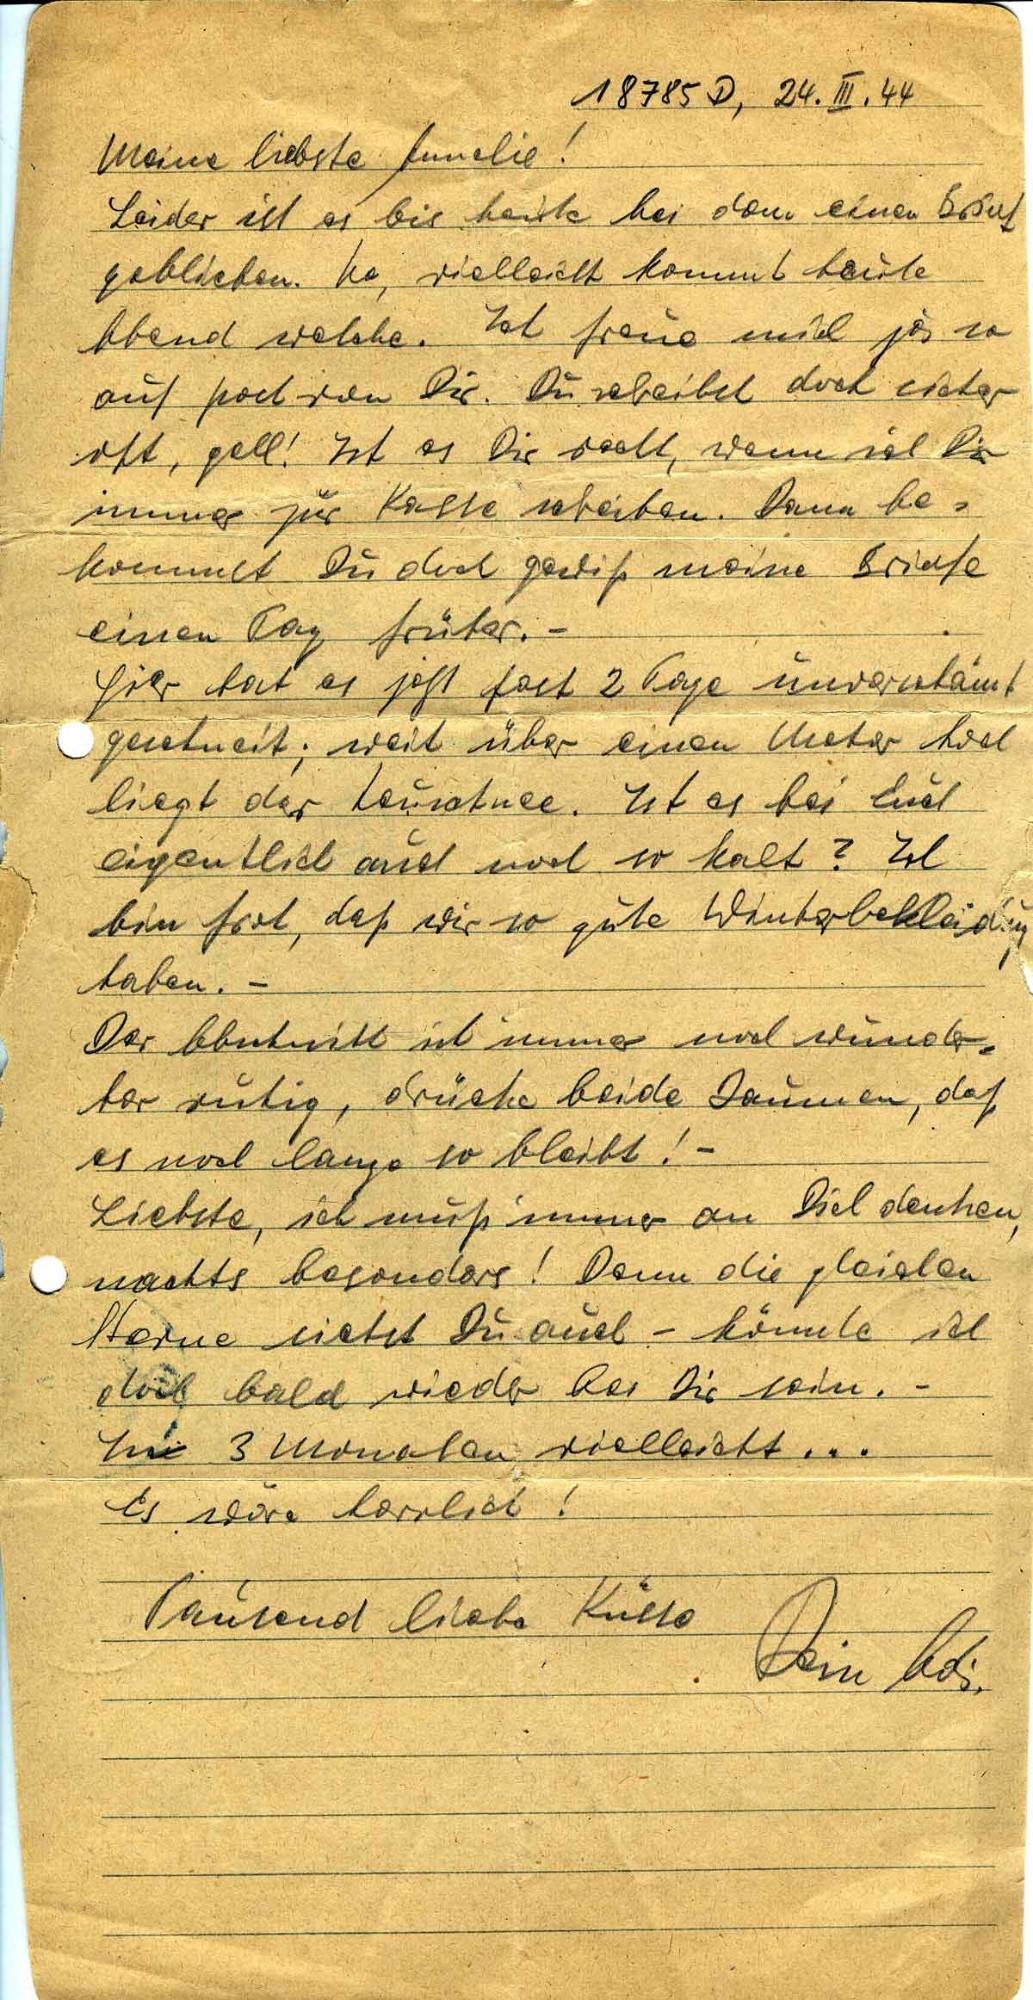 18785 D, 24. III. 44
Meine liebste Annelie!
Leider ist es bis heute bei dem einen Brief
geblieben. Na, vielleicht kommt heute
Abend welche. Ich freue mich ja so
auf Post von Dir. Du schreibst doch sicher
oft, gell! Ist es Dir recht, wenn ich Dir
immer zur Kasse schreiben. Dann be-
kommst Du doch gewiß meine Briefe
einen Tag früher. –
Hier hat es jetzt fast 2 Tage unverschämt
geschneit; weit über einen Meter hoch
liegt der Neuschnee. Ist es bei Euch
eigentlich auch noch so kalt? Ich
bin froh, daß wir so gute Winterbekleidung
haben. –
Der Abschnitt ist immer noch wunder-
bar ruhig, drücke beide Daumen, daß
es noch lange so bleibt! –
Liebste, ich muß immer an Dich denken,
nachts besonders! Denn die gleichen
Sterne siehst Du auch – könnte ich
doch bald wieder bei Dir sein. –
In 3 Monaten vielleicht...
Es wäre herrlich!
Tausend liebe Küsse
Dein Adi.